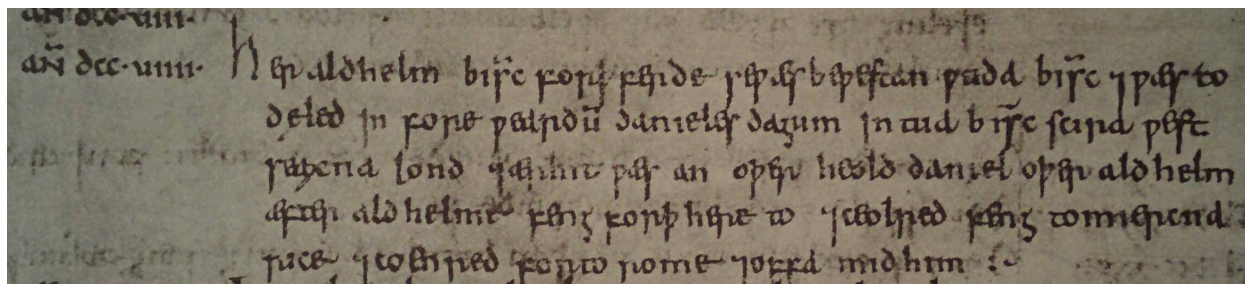 añ dcc·uiii·
añ dcc·uiiii· her aldhelm bisc̄ forþ ferde se ƿæs beƿestan ƿuda bisc̄ ⁊ ƿæs to
deled in fore ƿeardū danieles dagum in tua bisc̄ scira ƿest
seaxena lond ⁊ ær hit ƿæs an oþer heold daniel oþer ald helm
æfter ald helme feng forþ here to ⁊ ceolred feng to miercna
rice ⁊ coenred for to rome ⁊ offa mid him :~